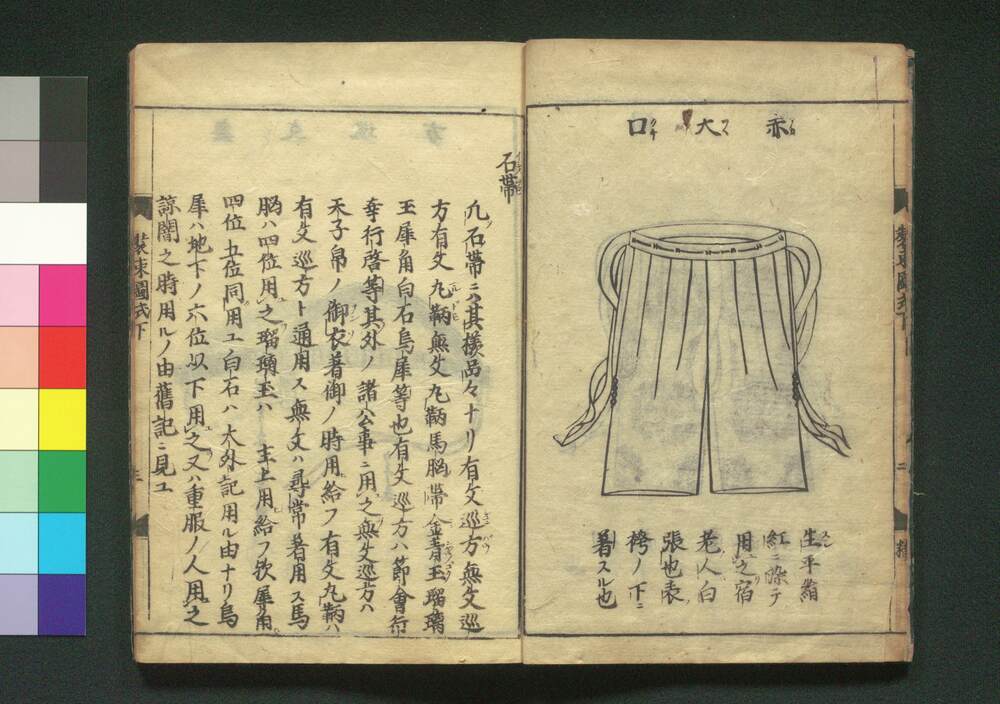 赤大口
生平絹
紅ニ染テ
用之宿
老人白
張也表
袴ノ下ニ
着スル也
裝束圖式下
石帶
凡石帶ニ其樣品々ナリ有文巡方無文巡
方有文丸鞆無文丸鞆馬腦帶金青玉瑠璃
玉犀角白石烏犀等也有文巡方ハ節會行
幸行啓等其外ノ諸公事ニ用之無文巡方ハ
天子帛ノ御衣著御ノ時用給フ有文丸鞆ハ
有文巡方ト通用ス無文ハ尋常著用ス馬
腦ハ四位用之瑠璃玉ハ主上用給フ欤犀角
四位五位同用ユ白石ハ大外記用ル由ナリ烏
犀ハ地下ノ六位以下用之又ハ重服ノ人用之
諒闇之時用ルノ由舊記ニ見ユ
裝束圖式下